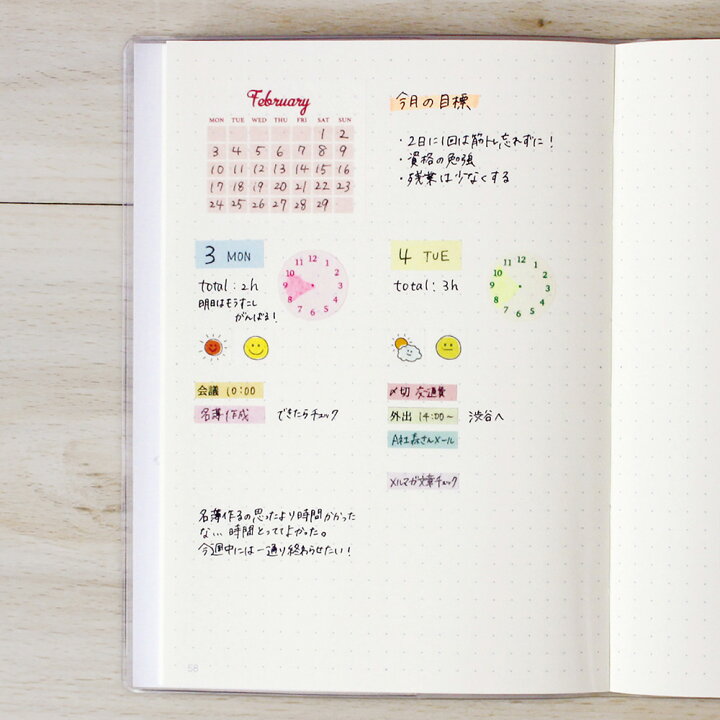 February
MON TUE WED THU FRI SAT SUN
1 2
3 4 5 6 7 8 9
10 11 12 13 14 15 16
17 18 19 20 21 22 23
24 25 26 27 28 29
今月の目標
・2日に1回は筋トレ忘れずに!
・資格の勉強
・残業は少なくする
3 MON
total:2h
明日はもうすこし
がんばる!
12 1 2 3 4 5 6 7 8 9 10 11
会議 10:00
名簿作成 できたらチェック
名簿作るの思ったより時間かかった
な... 時間とっててよかった。
今週中には一通り終わらせたい!
4 TUE
total:3h
12 1 2 3 4 5 6 7 8 9 10 11
〆切 交通費
外出 14:00~ 渋谷へ
A社森さんメール
メルマガ文章チェック
58